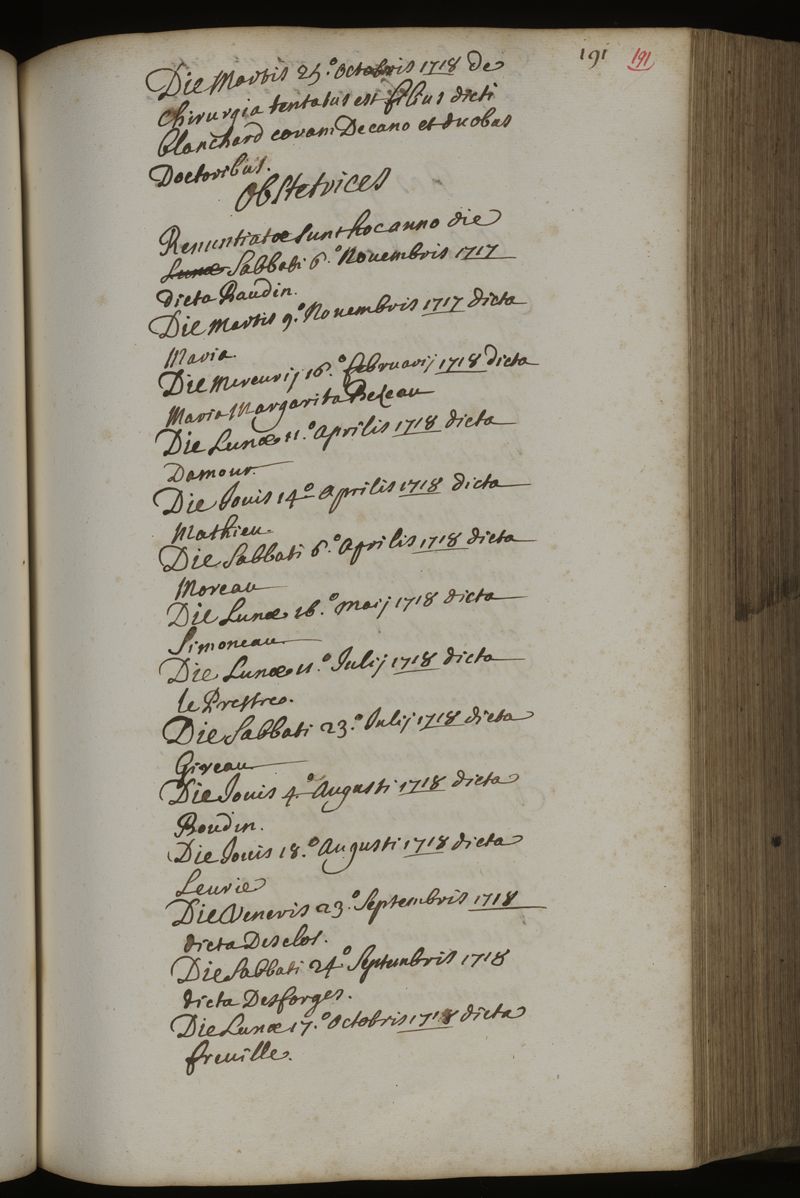 191 191
Die Martis 25.º Octobris 1718 de
Chirurgia tentatus est filius dicti
blanchard coram Decano et duobus
Doctoribus.
Obstetrices
Renuntiatæ sunt hoc anno die
Lunæ Sabbati 6.º Nouembris 1717
dicta Baudin.
Die Martis 9.º Nouembris 1717 dicta
Maria.
Die Mercurij 16.º februarij 1718 dicta
Maria Margarita Beleau
Die Lunæ 11.º Aprilis 1718 dicta
Damour.
Die Jouis 14º Aprilis 1718 dicta
Mathieu.
Die Sabbati 6.º Aprilis 1718 dicta
Moreau
Die Lunæ 16.º Maij 1718 dicta
Simoneau.
Die Lunæ 11.º Julij 1718 dicta
le Prestre.
Die Sabbati 23.º Julij 1718 dicta
Gireau
Die Jouis 4.º Augusti 1718 dicta
Boudin.
Die Jouis 18.º Augusti 1718 dicta
Leurie
Die Veneris 23.º Septembris 1718
dicta Desclos.
Die Sabbati 24º Septembris 1718
dicta Desforges.
Die Lunæ 17.º Octobris 1718 dicta
freuille.